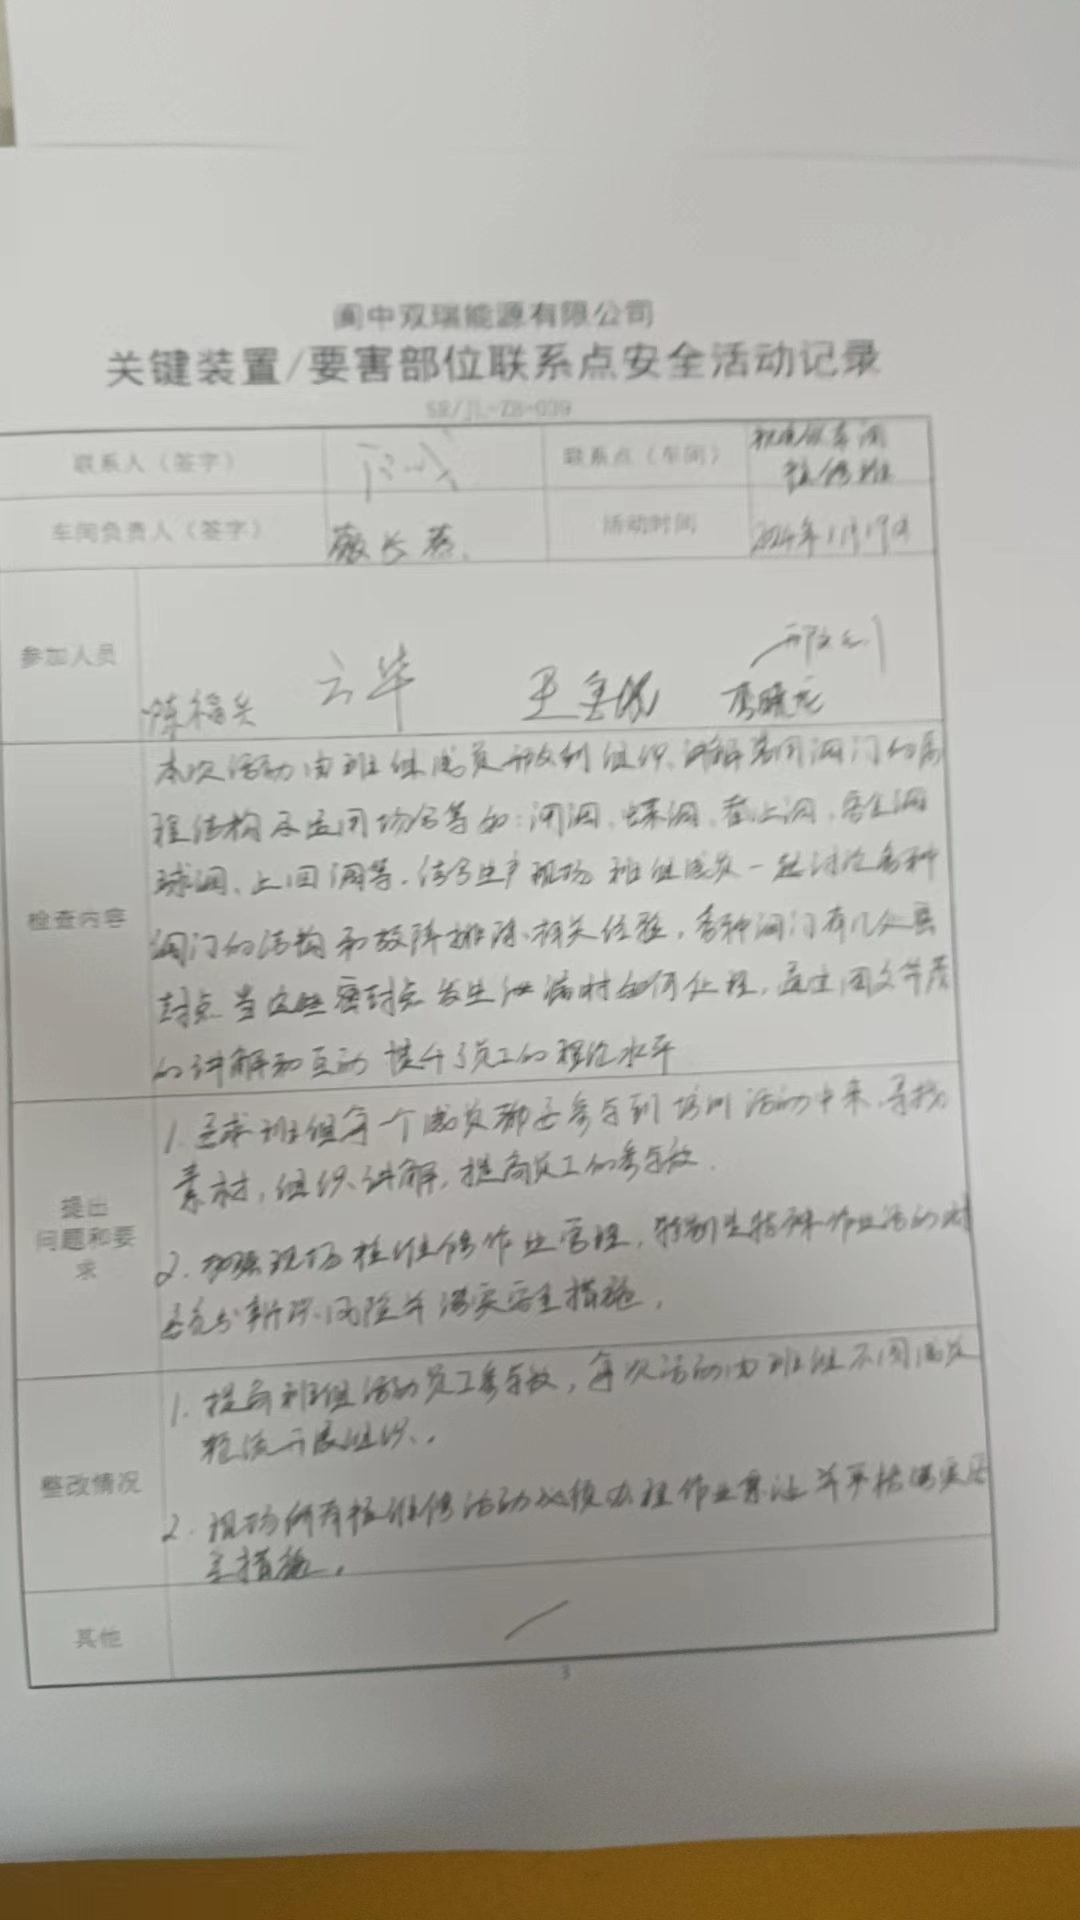 阆中双瑞能源有限公司
关键装置/要害部位联系点安全活动记录
SR/JL-ZB-039
联系人（签字） 联系点（车间） 机电仪车间
检修班
车间负责人（签字） 活动时间 2024年1月19日
参加人员
云华
陈福兴 李晓龙
检查内容
本次活动由班组成员 组织、讲解常用阀门的
结构及适用场合等如：闸阀、蝶阀、截止阀、安全阀
球阀、止回阀等，结合生产现场班组成员一起讨论各种
阀门的结构和故障排除相关经验，各种阀门有几处密
封点 当这些密封点发生泄漏时如何处理，通过图文并茂
的讲解和互动提升了员工的理论水平
提出
问题和要
求
1. 要求班组每一个成员都要参与到培训活动中来，寻找
素材，组织讲解，提高员工的参与度.
2. 加强现场检维修作业管理，特别是特殊作业活动时
要充分辨识风险并落实安全措施.
整改情况
1. 提高班组活动员工参与度，每次活动由班组不同成员
轮流开展组织.
2. 现场所有检维修活动必须办理作业票证并严格落实安
全措施.
其他
3